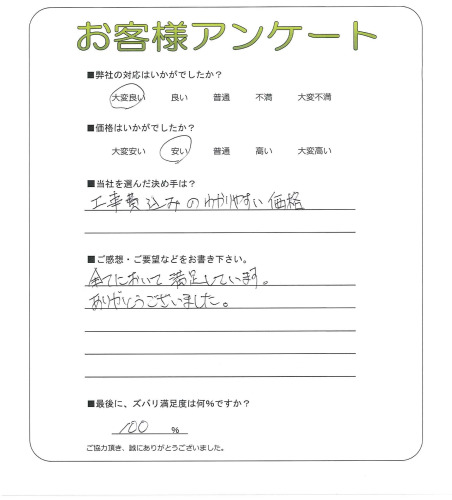 お客様アンケート
■弊社の対応はいかがでしたか？
大変良い 良い 普通 不満 大変不満
■価格はいかがでしたか？
大変安い 安い 普通 高い 大変高い
■当社を選んだ決め手は？
工事費込みのわかりやすい価格
■ご感想・ご要望などをお書き下さい。
全てにおいて満足しています。
ありがとうございました。
■最後に、ズバリ満足度は何%ですか？
100 %
ご協力頂き、誠にありがとうございました。